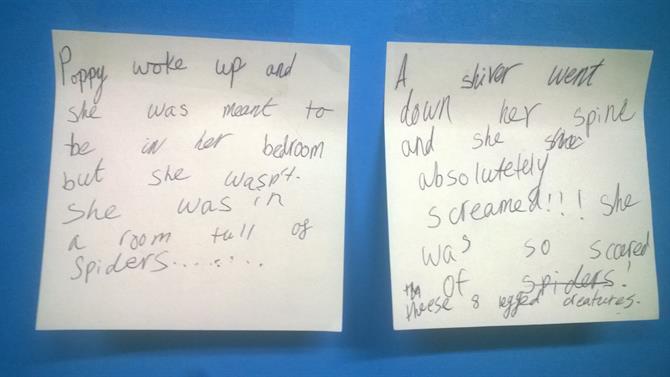 Poppy woke up and
she was meant to
be in her bedroom
but she wasn't.
she was in
a room full of
Spiders........
A shiver went
down her spine
and she she
absolutetely
screamed!!! she
was so scared
of spiders!
theese 8 legged creatures.